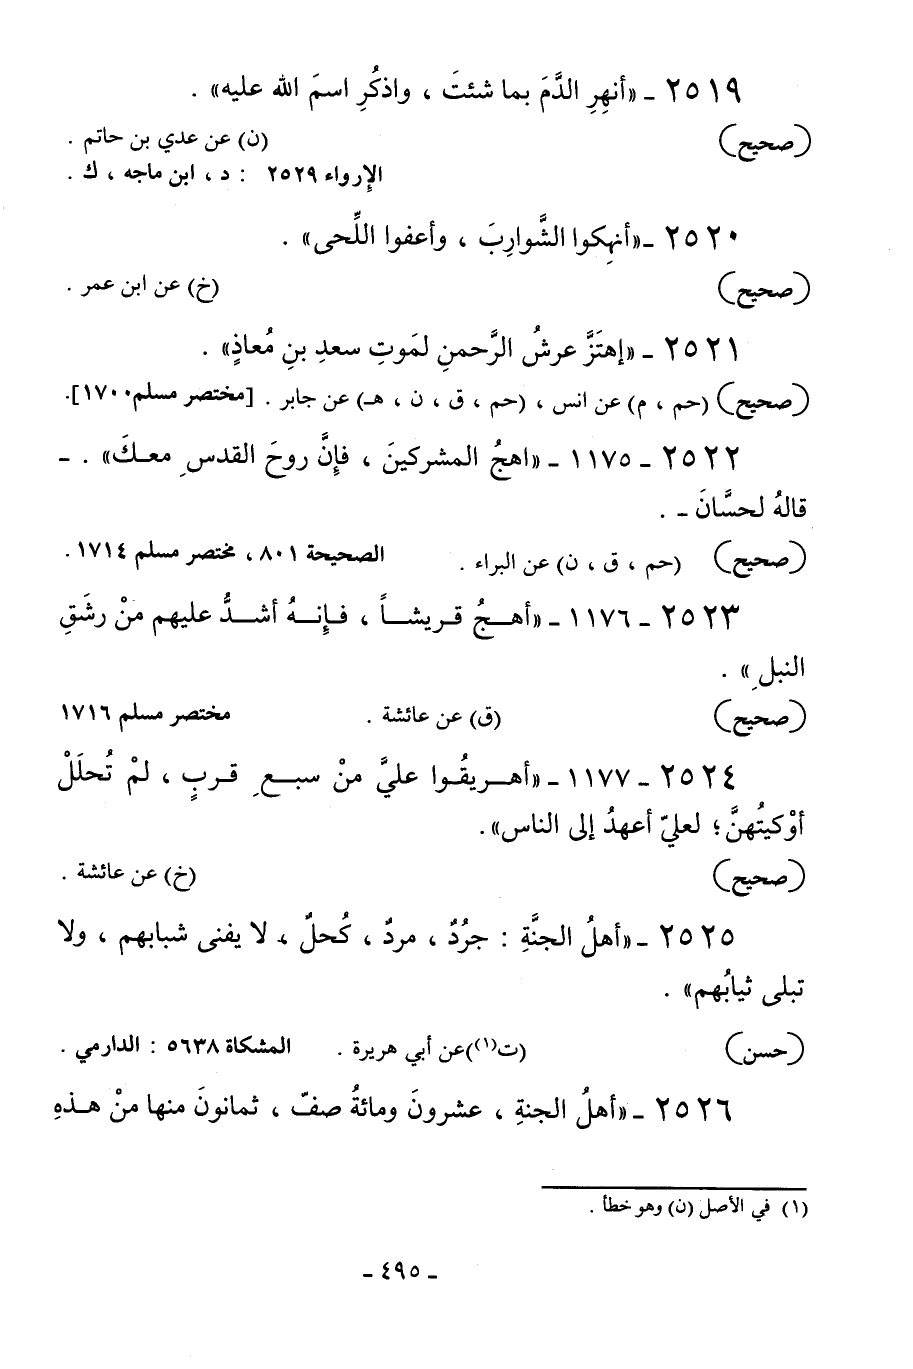 ٢٥١٩ ـ «أنهِرِ الدَّمَ بما شئتَ ، واذكُرِ اسمَ الله عليه» .
(صحيح) (ن) عن عدي بن حاتم .
الإرواء ٢٥٢٩ : د ، ابن ماجه ، ك .
٢٥٢٠ ـ «أنهِكوا الشَّوارِبَ ، وأعفوا اللِّحى» .
(صحيح) (خ) عن ابن عمر .
٢٥٢١ ـ «إهتَزَّ عرشُ الرَّحمنِ لمَوتِ سعدِ بنِ مُعاذٍ» .
(صحيح) (حم ، م) عن انس ، (حم ، ق ، ن ، هـ) عن جابر . [مختصر مسلم ١٧٠٠].
٢٥٢٢ ـ ١١٧٥ ـ «اهجُ المشركينَ ، فإنَّ روحَ القدسِ معكَ» . ـ
قالهُ لحسَّانَ ـ .
(صحيح) (حم ، ق ، ن) عن البراء . الصحيحة ٨٠١ ، مختصر مسلم ١٧١٤ .
٢٥٢٣ ـ ١١٧٦ ـ «أهجُ قريشاً ، فإنهُ أشدُّ عليهم منْ رشَقِ
النبلِ» .
(صحيح) (ق) عن عائشة . مختصر مسلم ١٧١٦
٢٥٢٤ ـ ١١٧٧ ـ «أهريقُوا عليَّ منْ سبعِ قربٍ ، لمْ تُحلَلْ
أوْكيتُهنَّ ؛ لعليّ أعهدُ إلى الناس» .
(صحيح) (خ) عن عائشة .
٢٥٢٥ ـ «أهلُ الجنَّةِ : جرُدٌ ، مردٌ ، كُحلٌ ، لا يفنى شبابهم ، ولا
تبلى ثيابُهم» .
(حسن) (ت(١)) عن أبي هريرة . المشكاة ٥٦٣٨ : الدارمي .
٢٥٢٦ ـ «أهلُ الجنةِ ، عشرونَ ومائةُ صفّ ، ثمانونَ منها منْ هذهِ
(١) في الأصل (ن) وهو خطأ .
ـ ٤٩٥ ـ